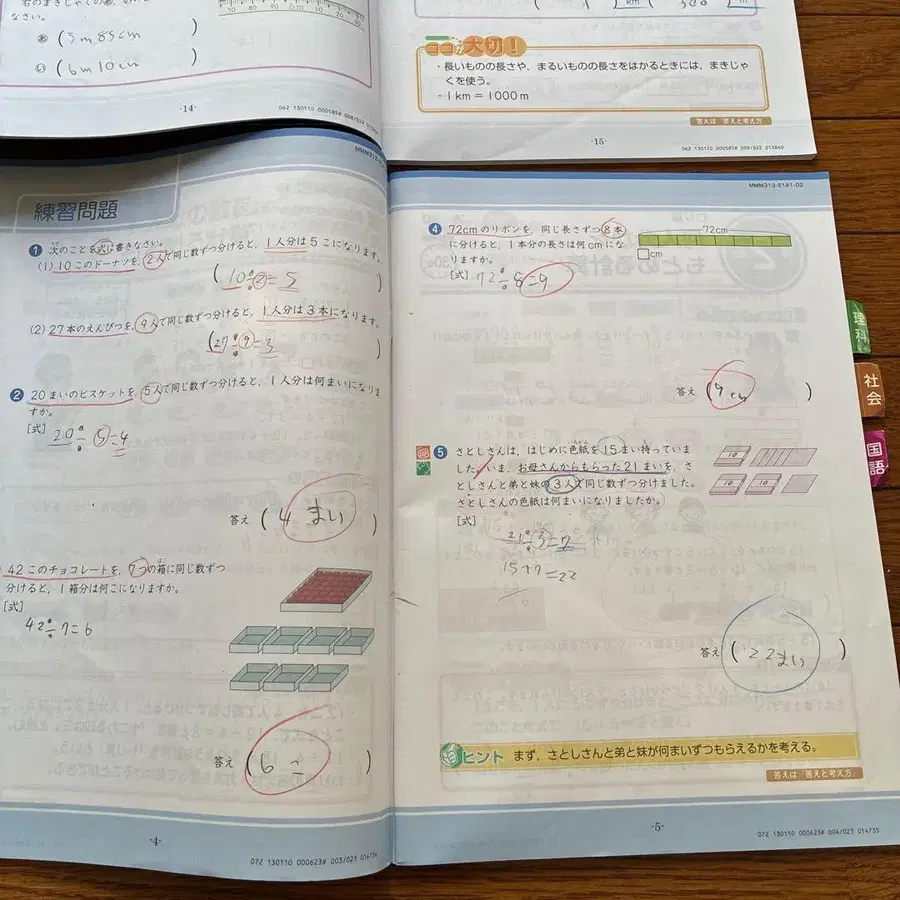 なさい。
あ (5m85cm)
い (6m10cm)
70 80 90
10 20
-14-
062 130110 000585# 008/022
km
m
ココが大切!
・長いものの長さや、まるいものの長さをはかるときには、まきじゃ
くを使う。
・1km = 1000m
答えは「答えと考え方」
-15-
062 130110 000585# 009/022 013860
練習問題
1 次のことを式に書きなさい。
(1) 10このドーナツを、2人で同じ数ずつ分けると、1人分は5こになります。
(10÷2=5)
(2) 27本のえんぴつを、9人で同じ数ずつ分けると、1人分は3本になります。
(27÷9=3)
2 20まいのビスケットを、5人で同じ数ずつ分けると、1人分は何まいになりま
すか。
[式] 20÷5=4
答え (4まい)
42このチョコレートを、7つの箱に同じ数ずつ
分けると、1箱分は何こになりますか。
[式]
42÷7=6
答え (6こ)
-4-
072 130110 000623# 003/023 014734
MMM313-S1A1-02
4 72cmのリボンを、同じ長さずつ8本
に分けると、1本分の長さは何cmにな
りますか。
[式] 72÷8=9
72cm
□cm
答え (9cm)
5 さとしさんは、はじめに色紙を15まい持っていま
した。いま、お母さんからもらった21まいを、さ
としさんと弟と妹の3人で同じ数ずつ分けました。
さとしさんの色紙は何まいになりましたか。
[式]
21÷3=7
15+7=22
10
10 10
答え (22まい)
ヒント まず、さとしさんと弟と妹が何まいずつもらえるかを考える。
答えは「答えと考え方」
-5-
072 130110 000623# 004/023 014735
理科
社会
国語